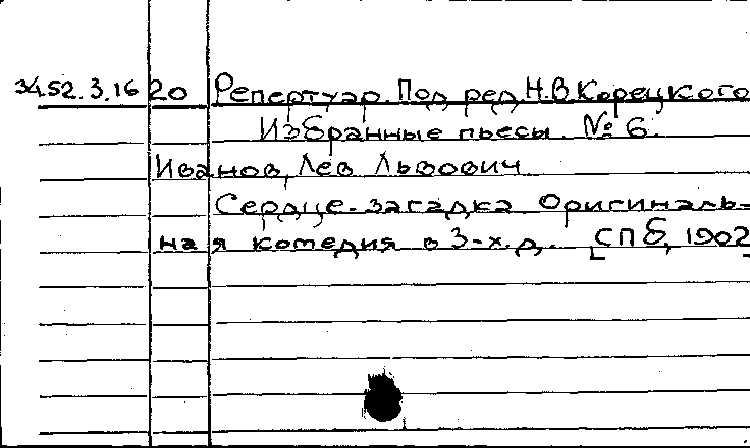 3452.3.16 20 Репертуар. Под ред. Н.В. Корецкого
Избранные пьесы. № 6.
Иванов, Лев Львович
Сердце-загадка Оригиналь-
ная комедия в 3-х. д. [СПб, 1902